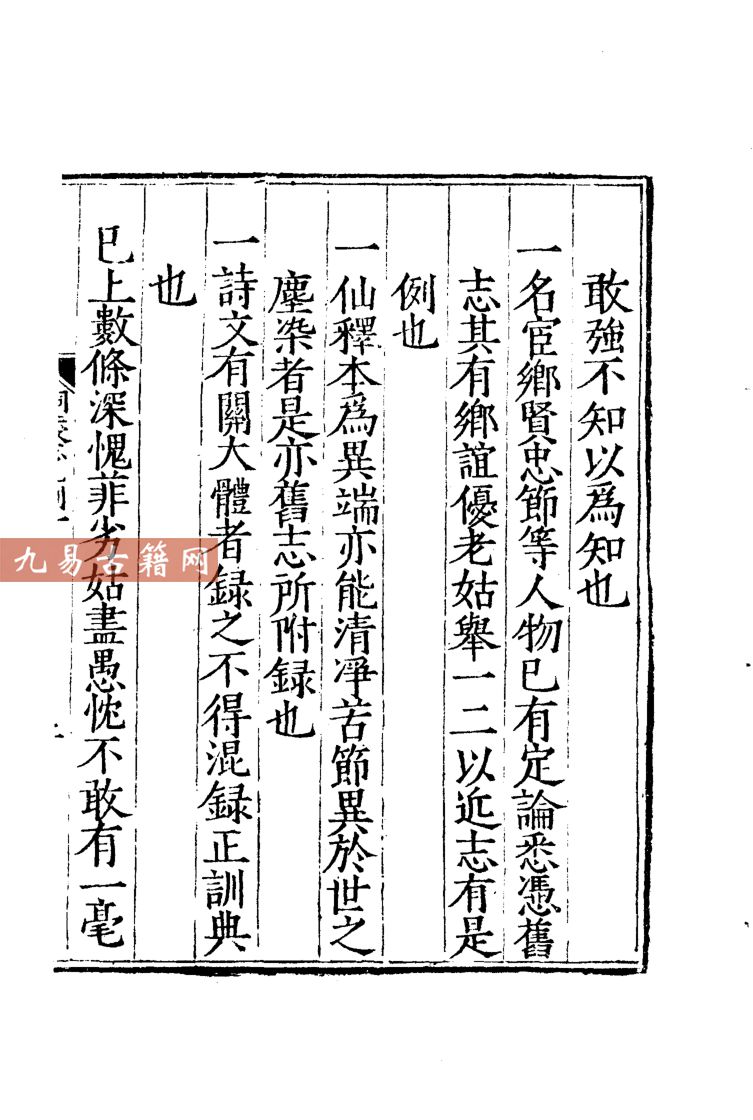 敢強不知以爲知也
一名宦鄉賢忠節等人物已有定論悉憑舊
志其有鄉誼優老姑舉一二以近志有是
例也
一仙釋本爲異端亦能清淨苦節異於世之
塵染者是亦舊志所附録也
一詩文有關大體者録之不得混録正訓典
也
已上數條深愧菲劣姑盡愚忱不敢有一毫
九易古籍网